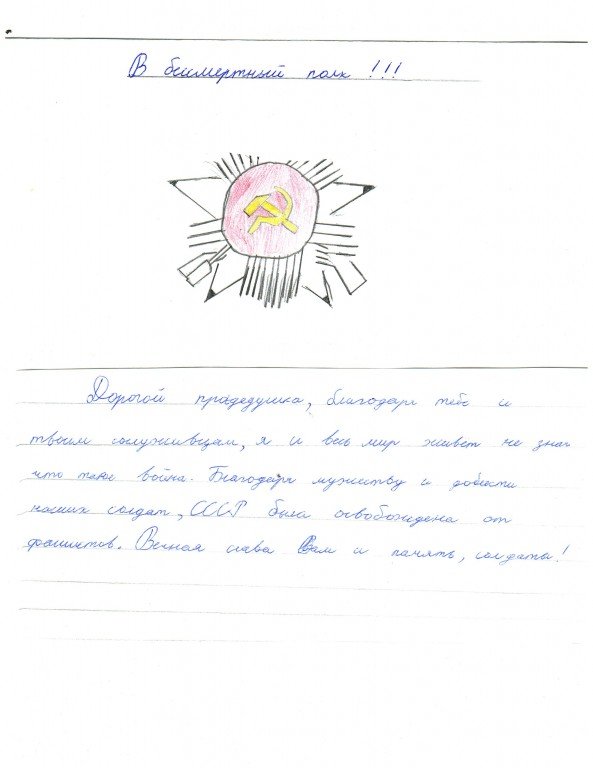 В бессмертный полк !!!
Дорогой прадедушка, благодаря тебе и
твоим сослуживцам, я и весь мир живет не зная
что такое война. Благодаря мужеству и доблести
наших солдат, СССР была освобождена от
фашистов. Вечная слава Вам и память, солдаты!